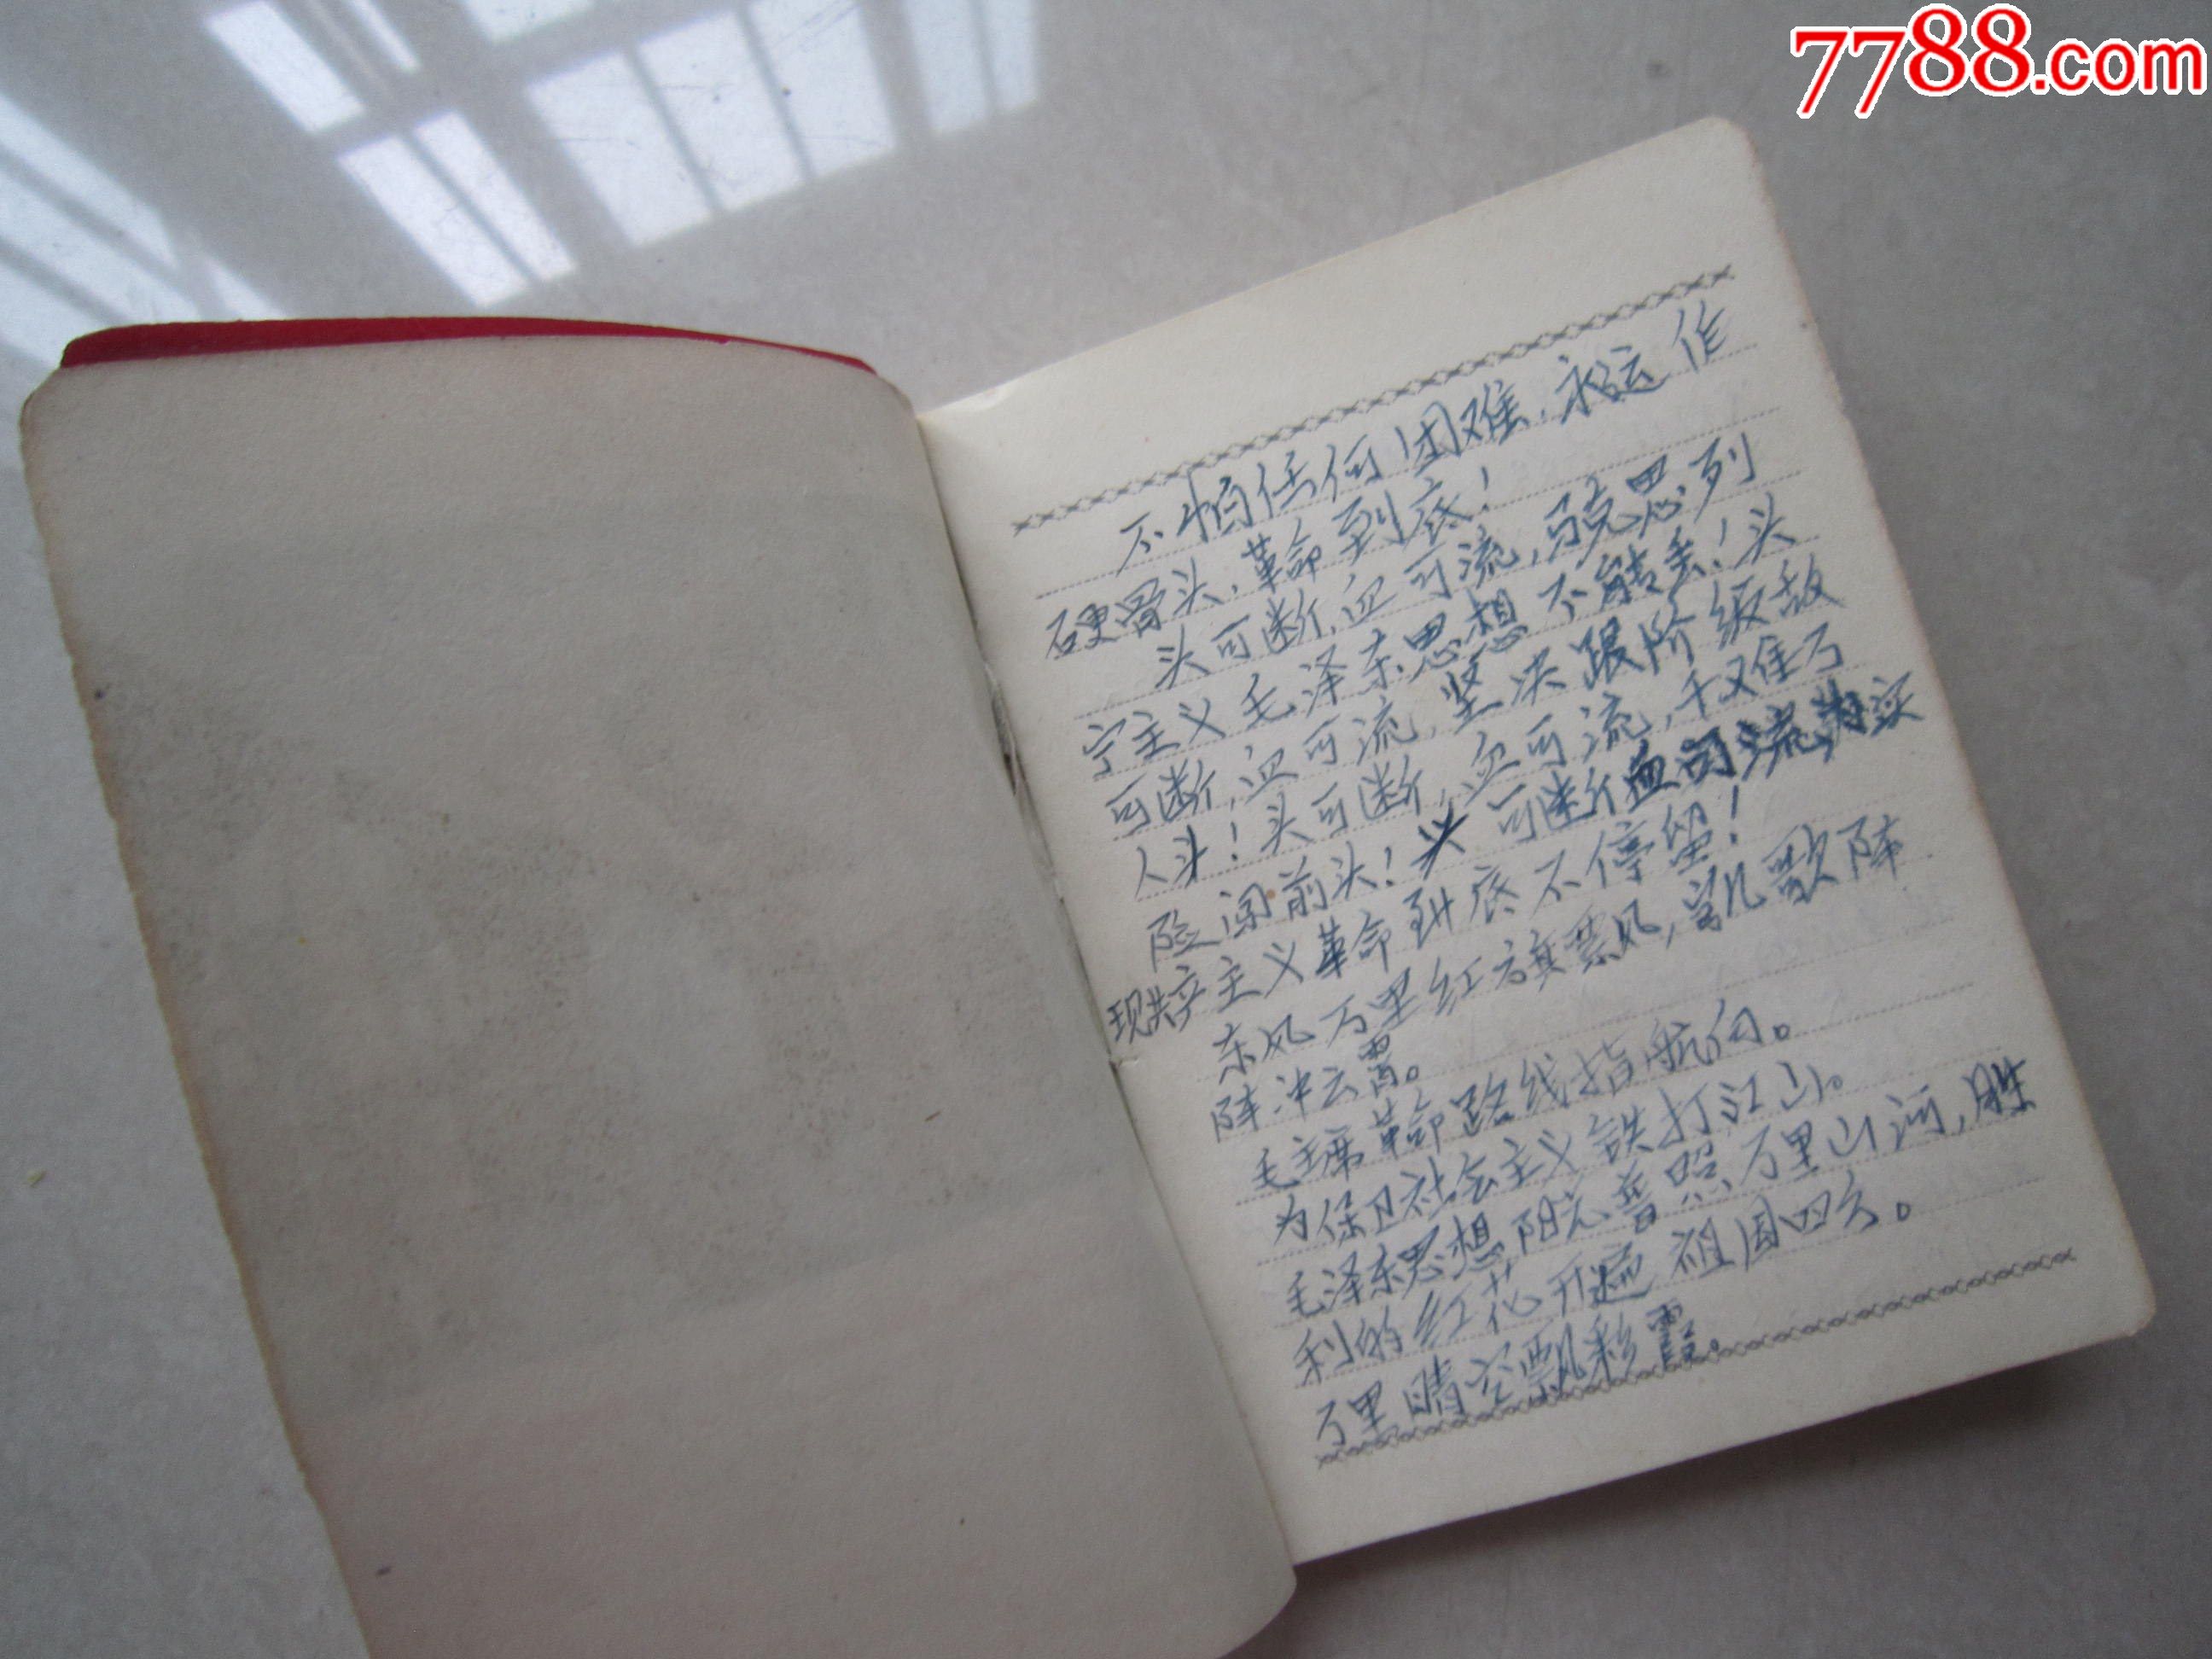 7788.com
不怕任何困难，永远作
硬骨头，革命到底！
头可断，血可流，马克思列
宁主义毛泽东思想不能丢！头
可断，血可流，坚决跟阶级敌
人头！头可断，血可流，千难万
险闯前头！头可断血可流，为实
现共产主义革命到底不停留！
东风万里红旗飘，凯歌阵
阵冲云霄。
毛主席革命路线指航向。
为保卫社会主义铁打江山。
毛泽东思想阳光普照万里山河，胜
利的红花开遍祖国四方。
万里晴空飘彩霞。